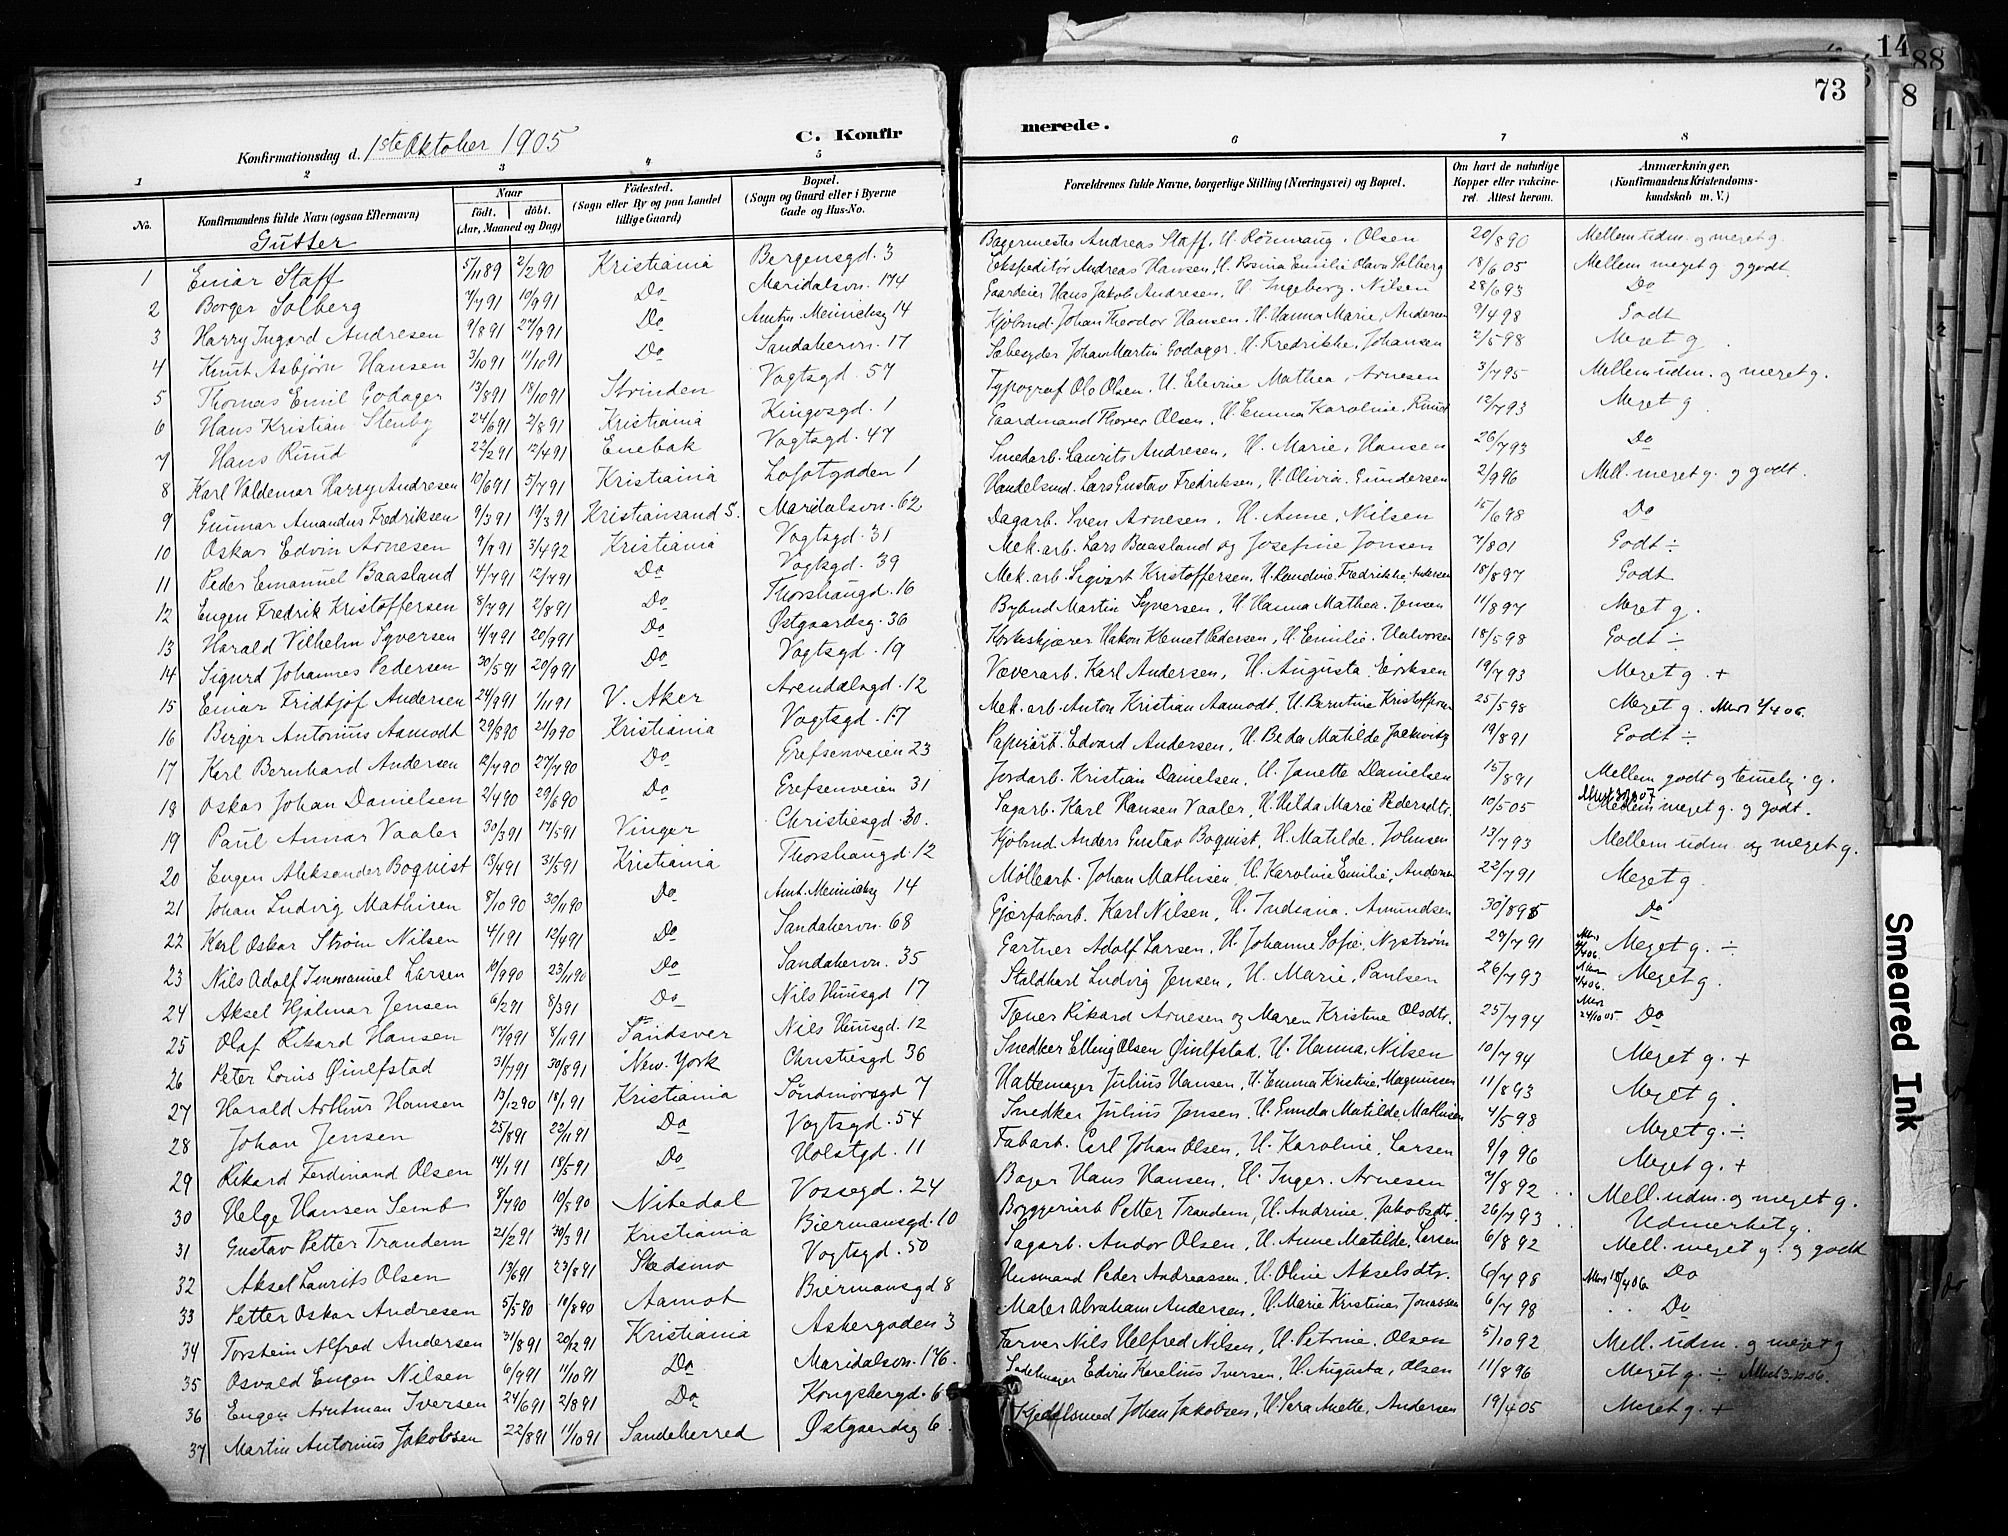 14
88
73
8
11
1
Konfirmationsdag d. 1ste Oktober 1905
C. Konfirmerede.
1 2 3 4 5 6 7 8
No.
Konfirmandens fulde Navn (ogsaa Efternavn)
Naar
født. døbt.
(Aar, Maaned og Dag)
Fødested.
(Sogn eller By og paa Landet tillige Gaard)
Bopæl.
(Sogn og Gaard eller i Byerne Gade og Hus-No.
Forældrenes fulde Navne, borgerlige Stilling (Næringsvei) og Bopæl.
Om havt de naturlige Kopper eller vakcineret. Attest herom.
Anmærkninger,
(Konfirmandens Kristendomskundskab m. V.)
Gutter
1 Einar Staff 5/11 89 2/2 90 Kristiania Bergensgd. 3 Bagermester Andreas Staff, H. Rönnaug. Olsen 20/8 90 Mellem udm. og meget g.
2 Borger Solberg 7/7 91 10/9 91 Do Maridalsvn. 174 Ekspeditör Andreas Hansen, H. Rosina Emilie Olava Solberg 18/6 05 Mellem meget g. g godt.
3 Harry Ingard Andresen 9/8 91 27/9 91 Do Amtm. Meinichsg 14 Gaardeier Hans Jakob Andresen, H. Ingeborg. Nilsen 28/6 93 Do
4 Knut Asbjørn Hansen 3/10 91 11/10 91 Do Sandakervn. 17 Kjöbmd. Johan Theodor Hansen. H. Hanna Marie, Andersen 9/4 98 Godt
5 Thomas Emil Godager 13/8 91 18/10 91 Strinden Vogtsgd. 57 Sæbesyder Johan Martin Godager, H. Fredrikke, Johansen 2/5 98 Meget g.
6 Hans Kristian Stenby 24/6 91 2/8 91 Kristiania Kingosgd. 1 Typograf Ole Olsen. H. Elevine Mathea, Arnesen 3/7 95 Mellem udm. og meget g.
7 Hans Ruud 22/2 91 12/4 91 Enebak Vogtsgd. 47 Gaardmand Thorer Olsen, H. Emma Karoline, Ruud 12/7 93 Meget g.
8 Karl Valdemar Harry Andresen 10/6 91 5/7 91 Kristiania Lofotgaden 1 Smedarb. Laurits Andresen, H. Marie, Hansen 26/7 93 Do
9 Gunnar Amandus Fredriksen 9/3 91 19/3 91 Kristiansand S. Maridalsvn. 62 Handelsmd. Lars Gustav Fredriksen, H. Olivia. Gundersen 2/9 96 Mell. meget g. og godt.
10 Oskar Edvin Arnesen 9/9 91 3/4 92 Kristiania Vogtsgd. 31 Dagarb. Sven Arnesen, H. Anne, Nilsen 15/6 98 Do
11 Peder Emanuel Baasland 4/7 91 12/7 91 Do Vogtsgd. 39 Mek. arb. Lars Baasland og Josefine Jonsen 7/8 01 Godt ÷
12 Eugen Fredrik Kristoffersen 8/7 91 2/8 91 Do Thorshaugd. 16 Mek. arb. Sigvart Kristoffersen, H. Randine Fredrikke. Andersen 18/8 97 Godt
13 Harald Vilhelm Syversen 4/7 91 20/9 91 Do Østgaardsg. 36 Bybud Martin Syversen, H. Hanna Mathea. Jensen 11/8 97 Meget g.
14 Sigurd Johannes Pedersen 30/5 91 20/9 91 Do Vogtsgd. 19 Korkskjærer Hakon Klemet Pedersen, H. Emilie. Halvorsen 18/5 98 Godt ÷
15 Einar Fridtjof Andersen 24/9 91 1/11 91 V. Aker Arendalsgd. 12 Væverarb. Karl Andersen, H. Augusta, Eriksen 19/7 93 Meget g. +
16 Birger Antonius Aamodt 29/8 90 21/9 90 Kristiania Vogtsgd. 17 Mek. arb. Anton Kristian Aamodt, H. Berntine Kristoffersen 25/5 98 Meget g.
17 Karl Bernhard Andersen 12/7 90 27/7 90 Do Grefsenveien 23 Papirarb. Edvard Andersen, H. Beda Matilde 19/8 91 Godt ÷
18 Oskar Johan Danielsen 2/4 90 29/6 90 Do Grefsenveien 31 Jordarb. Kristian Danielsen, H. Janette Danielsen 15/8 91 Mellem godt og temelig. g.
19 Paul Annar Vaaler 30/3 91 17/5 91 Vinger Christiesgd. 30. Sagarb. Karl Hansen Vaaler, H. Hilda Marie Pedersdtr. 10/5 05 Mellem meget g. og godt.
20 Eugen Aleksander Boquist 13/4 91 31/5 91 Kristiania Thorshaugd. 12 Kjöbmd Anders Gustav Boquist, H. Matilde. Johnsen 13/7 93 Mellem udm. og meget g.
21 Johan Ludvig Mathisen 8/10 90 30/11 90 Do Amt. Meinichsg 14 Møllearb. Johan Mathisen, H. Karoline Emilie, Andersen 22/7 91 Meget g.
22 Karl Oskar Strøm Nilsen 4/1 91 12/4 91 Do Sandakervn. 68 Gjærfabarb. Karl Nilsen, H. Indiana. Amundsen 30/8 95 Do
23 Nils Adolf Immanuel Larsen 19/9 90 23/11 90 Do Sandakervn. 35 Gartner Adolf Larsen, H. Johanne Sofie, Nystrøm 29/7 91 Meget g. ÷
24 Aksel Hjalmar Jensen 6/2 91 8/3 91 Do Nils Huusgd 17 Staldkarl Ludvig Jensen, H. Marie, Paulsen 26/7 93 Meget g.
25 Olaf Rikard Hansen 17/9 91 8/11 91 Sandsver Nils Huusgd. 12 Tjener Rikard Arnesen og Maren Kristine Olsdtr. 25/7 94 24/10 05 Do
26 Peter Louis Øinlfstad 31/7 91 30/8 91 New York Christiesgd 36 Snedker Elling Olsen Øinlfstad, H. Hanna, Nilsen 10/7 94 Meget g. +
27 Harald Arthur Hansen 13/12 90 18/1 91 Kristiania Søndmørsgd 7 Hattemager Julius Hansen, H. Emma Kristine, Magnussen 11/8 93 Meget g.
28 Johan Jensen 25/8 91 22/11 91 Do Vogtsgd. 54 Snedker Julius Jensen, H. Gunda Matilde, Mathisen 4/5 98 Meget g. ÷
29 Rikard Ferdinand Olsen 14/1 91 18/5 91 Do Holstgd. 11 Fabarb. Carl Johan Olsen, H. Karoline, Larsen 9/9 96 Meget g. +
30 Helge Hansen Semb 8/7 90 10/5 90 Nitedal Vossegd. 24 Bager Hans Hansen, H. Inger. Arnesen 7/8 92 Mell. udm. og meget g.
31 Gustav Petter Trandem 21/2 91 30/3 91 Kristiania Biermansgd. 10 Bryggeriarb Petter Trandem, H. Andrine. Jakobsdtr. 26/7 93 Udmerket g.
32 Aksel Laurits Olsen 13/6 91 23/8 91 Skedsmo Vogtsgd. 50 Sagarb. Andor Olsen, H. Anne Matilde, Larsen 6/8 92 Mell. meget g. og godt
33 Petter Oskar Andresen 5/5 90 10/8 90 Aamot Biermansgd 8 Husmand Peder Andreassen, H. Oline Akselsdtr. 6/7 98 18/4 06 Do
34 Torstein Alfred Andersen 31/8 91 20/12 91 Kristiania Askergaden 3 Maler Abraham Andersen, H. Marie Kristine, Jonassen 6/7 98 Do
35 Osvald Eugen Nilsen 6/9 91 11/10 91 Do Maridalsvn. 176. Farver Nils Helfred Nilsen, H. Petrine, Olsen 5/10 92 Mell. udm. og meget g
36 Eugen Arntman Iversen 24/6 91 2/8 91 Do Kongsbergd. 6 Sadelmager Edvin Karelius Iversen, H. Augusta, Olsen 11/8 96 Meget g. ÷
37 Martin Antonius Jakobsen 22/8 91 11/10 91 Sandeherred Østgaardsg 6 Kjedelsmed Johan Jakobsen, H. Sara Anette, Andersen 19/4 05 Meget g. +
Smeared Ink